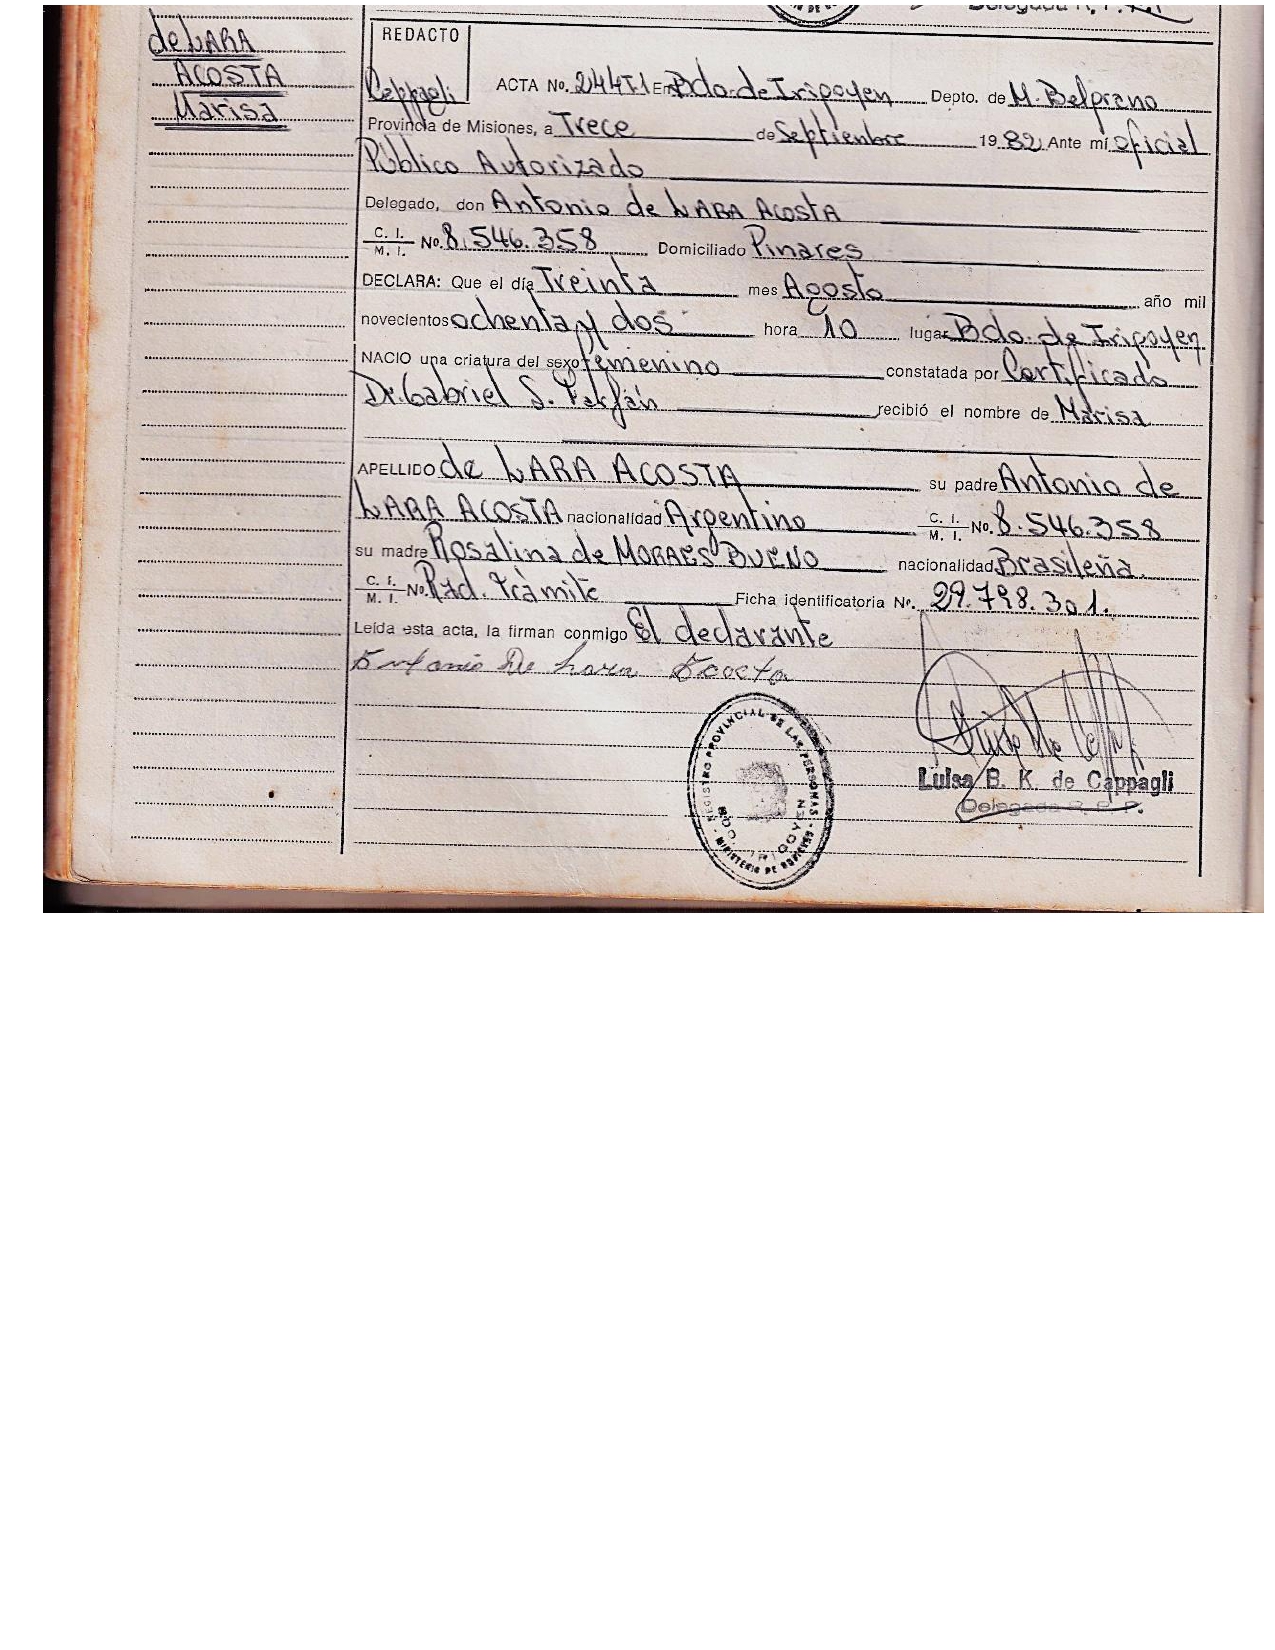 de LARA
ACOSTA
Marisa
REDACTO
Cappagli
ACTA No. 244 T.1 En Bdo. de Irigoyen Depto. de M. Belgrano
Provincia de Misiones, a Trece de Septiembre 1982 Ante mí oficial
Público Autorizado
Delegado, don Antonio de LARA ACOSTA
C. I. / M. I. No. 8.546.358 Domiciliado Pinares
DECLARA: Que el día Treinta mes Agosto año mil
novecientos ochenta y dos hora 10 lugar Bdo. de Irigoyen
NACIO una criatura del sexo femenino constatada por Certificado
Dr. Gabriel S. Farfán recibió el nombre de Marisa
APELLIDO de LARA ACOSTA su padre Antonio de
LARA ACOSTA nacionalidad Argentino C. I. / M. I. No. 8.546.358
su madre Rosalina de MORAES BUENO nacionalidad Brasileña.
C. I. / M. I. No. Rad. Trámite Ficha identificatoria No. 29.798.301.
Leída esta acta, la firman conmigo El declarante
Antonio De Lara Acosta
REGISTRO PROVINCIAL DE LAS PERSONAS
BDO. IRIGOYEN
Luisa B. K. de Cappagli
Delegada R. P. P.